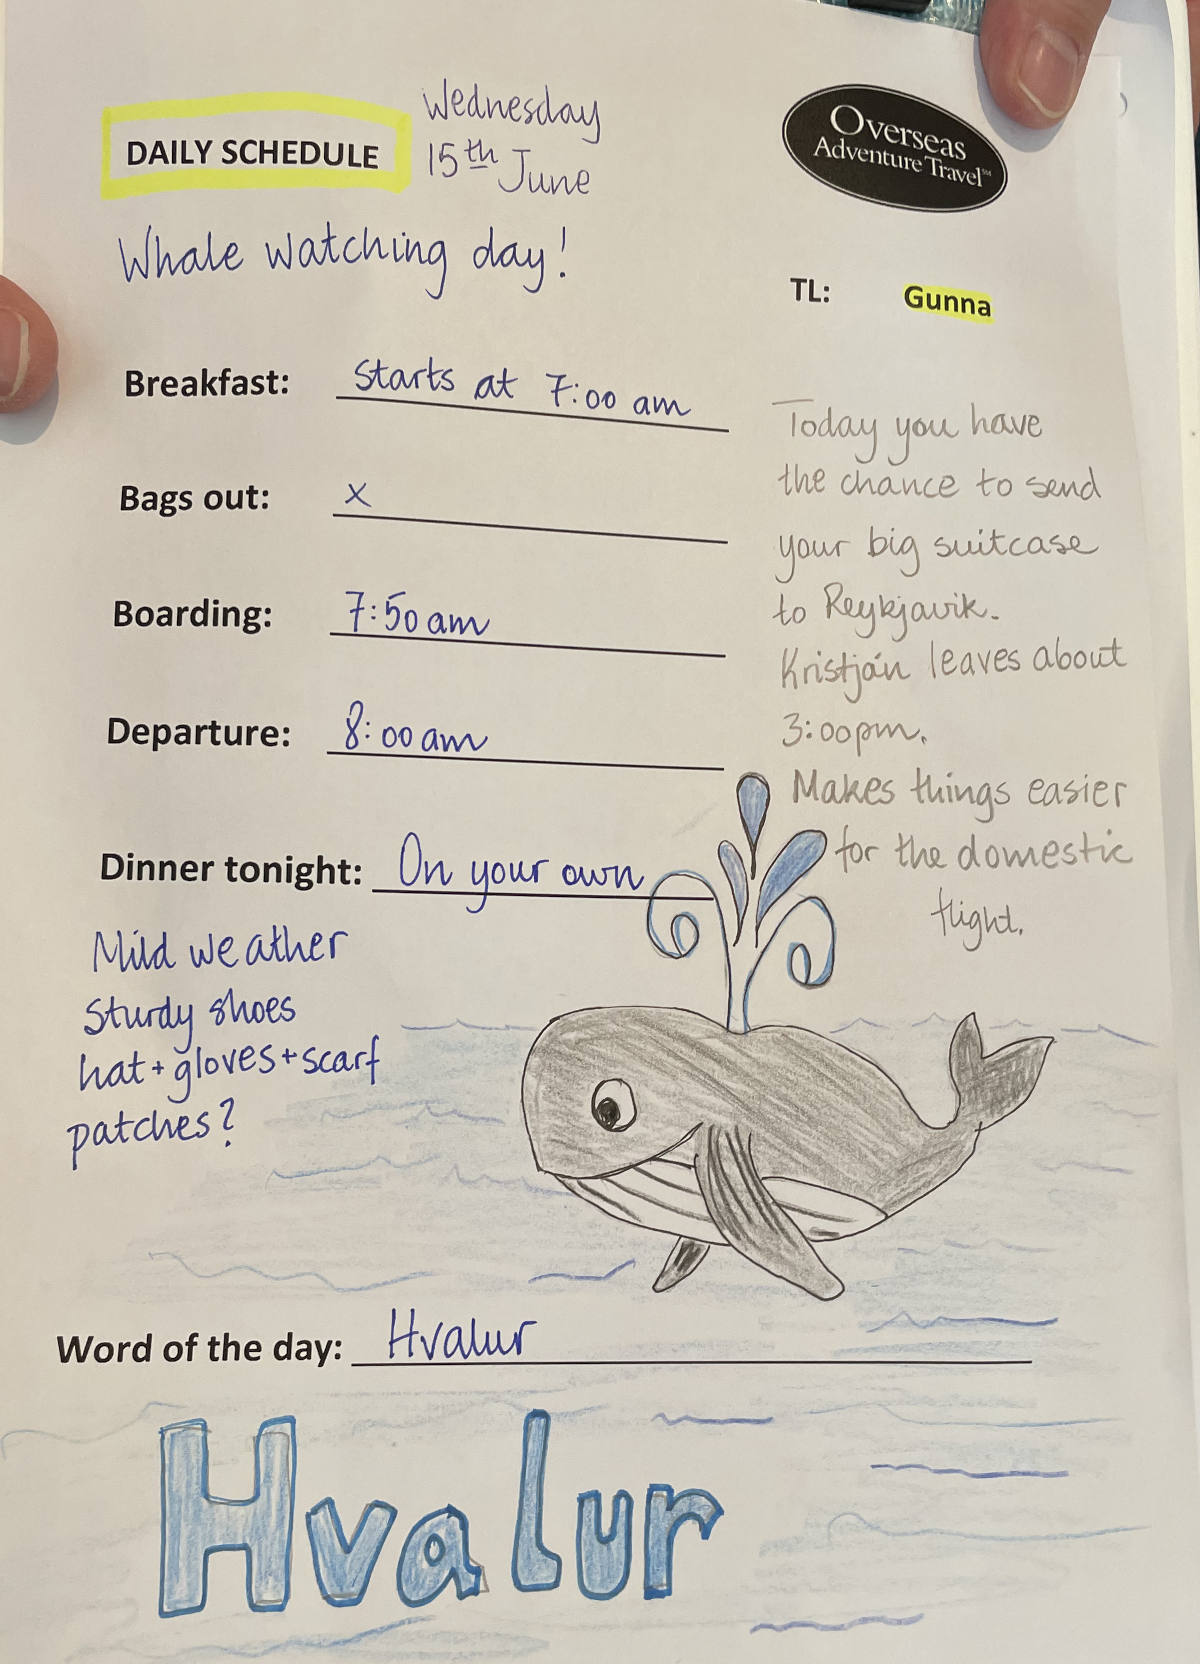 DAILY SCHEDULE
Wednesday
15th June
Overseas
Adventure Travel℠
Whale watching day!
TL: Gunna
Breakfast: Starts at 7:00 am
Bags out: x
Boarding: 7:50 am
Departure: 8:00 am
Dinner tonight: On your own
Today you have
the chance to send
your big suitcase
to Reykjavik.
Kristján leaves about
3:00pm.
Makes things easier
for the domestic
flight.
Mild weather
Sturdy shoes
hat + gloves + scarf
patches?
Word of the day: Hvalur
Hvalur